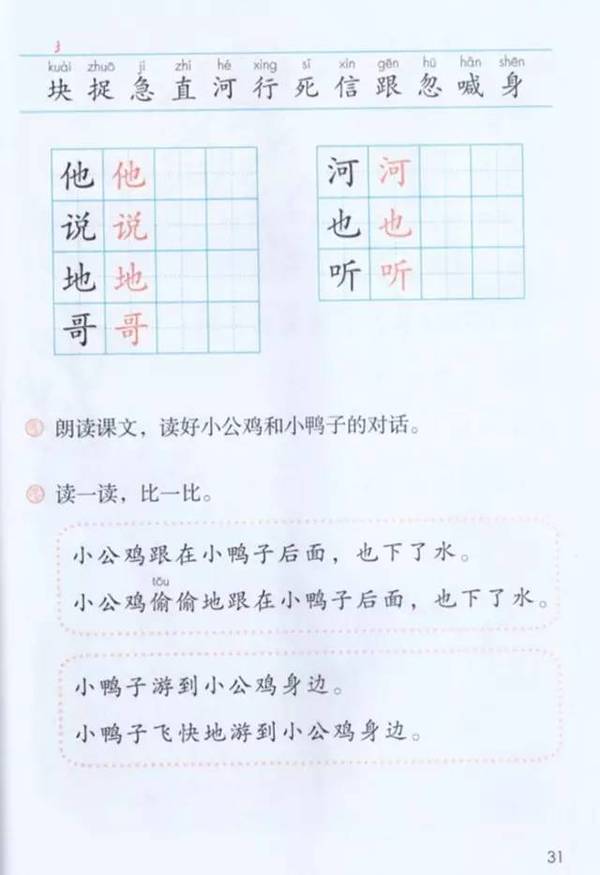 kuài zhuō jí zhí hé xíng sǐ xìn gēn hū hǎn shēn
块 捉 急 直 河 行 死 信 跟 忽 喊 身
他 他
说 说
地 地
哥 哥
河 河
也 也
听 听
朗读课文，读好小公鸡和小鸭子的对话。
读一读，比一比。
小公鸡跟在小鸭子后面，也下了水。
tōu
小公鸡偷偷地跟在小鸭子后面，也下了水。
小鸭子游到小公鸡身边。
小鸭子飞快地游到小公鸡身边。
31